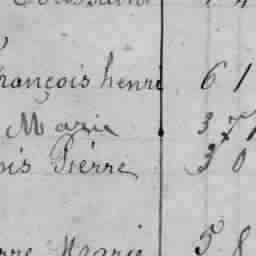 françois henri 6 1
Marie 3 7 1
ois Pierre 3 0
Marie 5 8